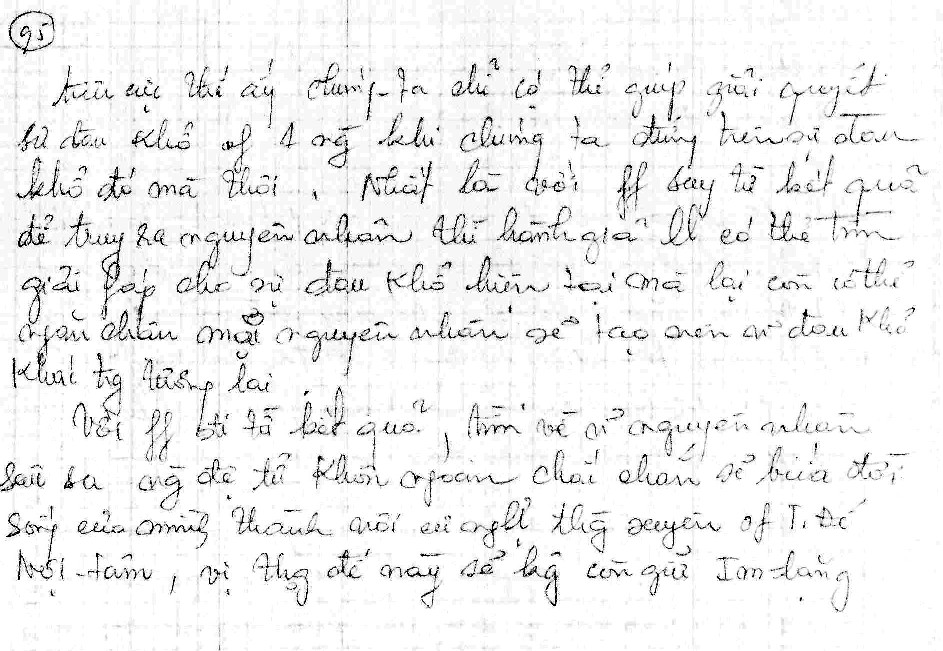 95
tiêu cực thế ấy chúng-ta chỉ có thể giúp giải quyết
sự đau khổ of 1 ng khi chúng ta đứng trên sự đau
khổ đó mà thôi. Nhất là với ff suy từ kết quả
để truy ra nguyên nhân thì hành giả có thể tìm
giải fáp cho sự đau khổ hiện tại mà lại còn có thể
ngăn chận mọi nguyên nhân sẽ tạo nên sự đau khổ
khác tg tương lai.
Với ff đi từ kết quả, tìm về sự nguyên nhân
sâu sa ng đệ tử khôn ngoan chắc chắn sẽ biến đời
sống của mình thành nơi cư ngụ thg xuyên of T. Đế
Nội-tâm, vị thg đế này sẽ kg còn giữ Im-lặng